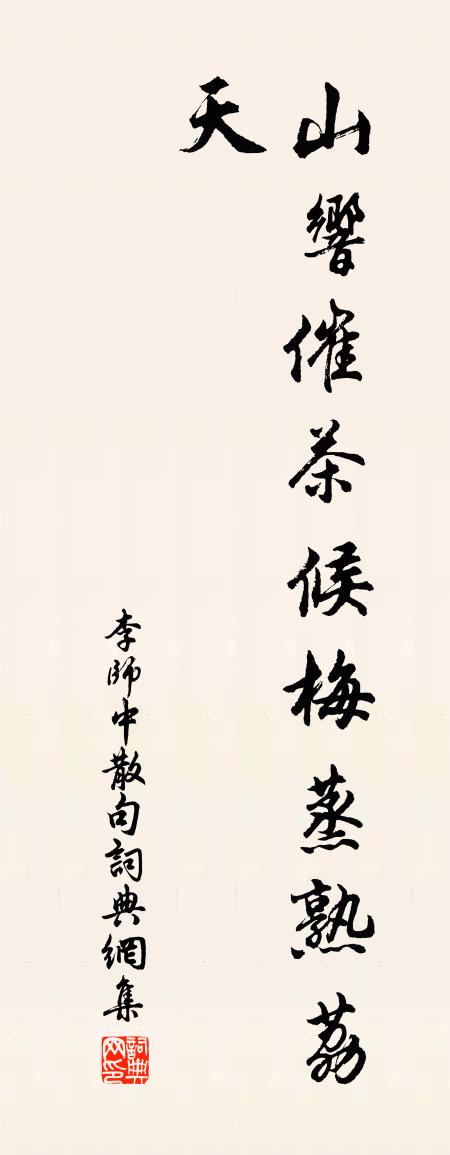 山響催茶候梅蒸熟荔
天
李師中散句詞典網集
詞典网印